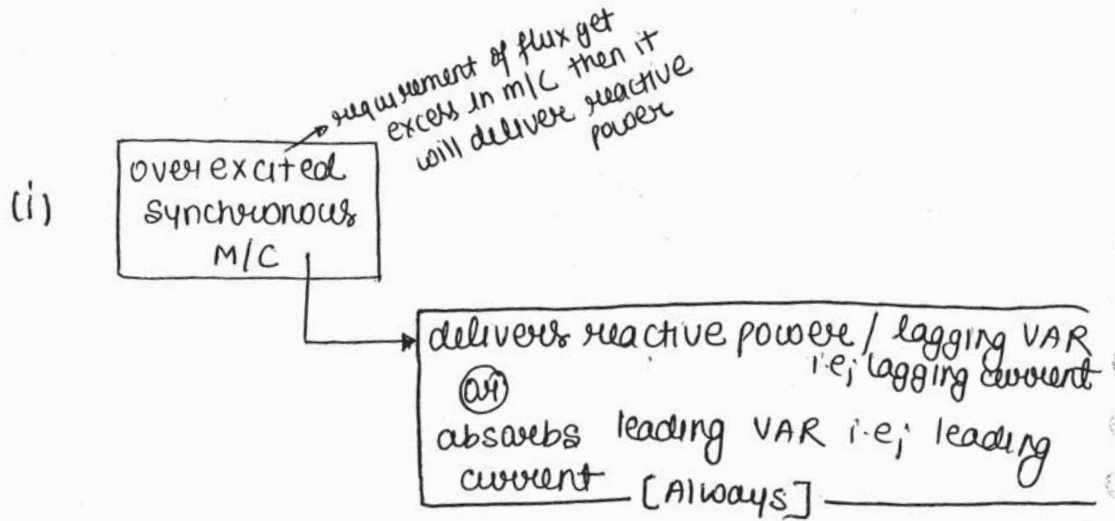 requirement of flux get
excess in m/c then it
will deliver reactive
power
(i)
over excited
synchronous
M/C
delivers reactive power / lagging VAR
i.e; lagging current
or
absorbs leading VAR i.e; leading
current
[Always]